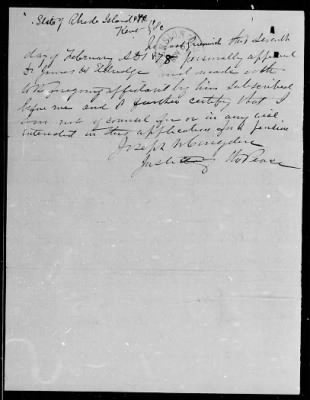 State of Rhode Island &c
Kent Sc
In East Greenwich this Seventh
day of February AD 1878 personally appeared
Dr James H Eldredge and made oath
to the foregoing affidavit by him Subscribed
before me and I further certify that I
am not of counsel for or in any wise
interested in this application for a pension
Joseph W Congdon
Justice of the Peace